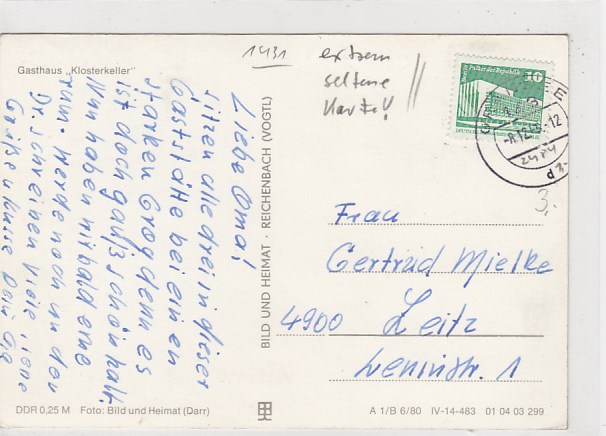 Gasthaus „Klosterkeller“
1431
extrem
seltene
Karte!
Liebe Oma!
sitzen alle drei in dieser
Gaststätte bei einen
starken Grog denn es
ist doch ganz schön kalt.
Nun haben wir bald eine
rum. Werde noch an den
Dr. schreiben. Viele liebe
Grüße u. Küsse
BILD UND HEIMAT REICHENBACH (VOGTL)
10
-8.12.
3.
Frau
Gertrud Mielke
4900 Zeitz
Leninstr. 1
DDR 0,25 M Foto: Bild und Heimat (Darr)
A 1/B 6/80 IV-14-483 01 04 03 299